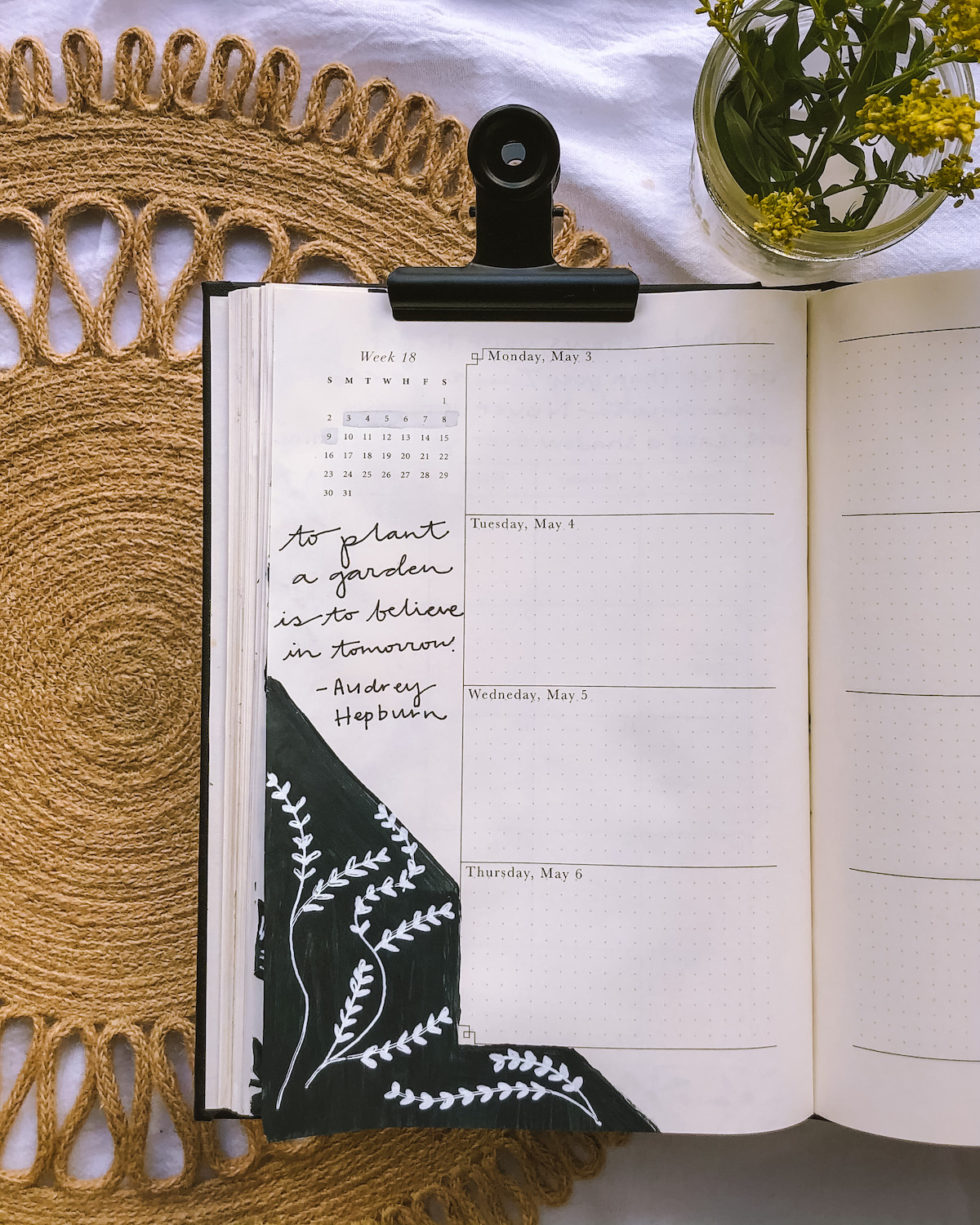 Week 18
S M T W H F S
1
2 3 4 5 6 7 8
9 10 11 12 13 14 15
16 17 18 19 20 21 22
23 24 25 26 27 28 29
30 31
to plant
a garden
is to believe
in tomorrow.
-Audrey
Hepburn
Monday, May 3
Tuesday, May 4
Wedneday, May 5
Thursday, May 6